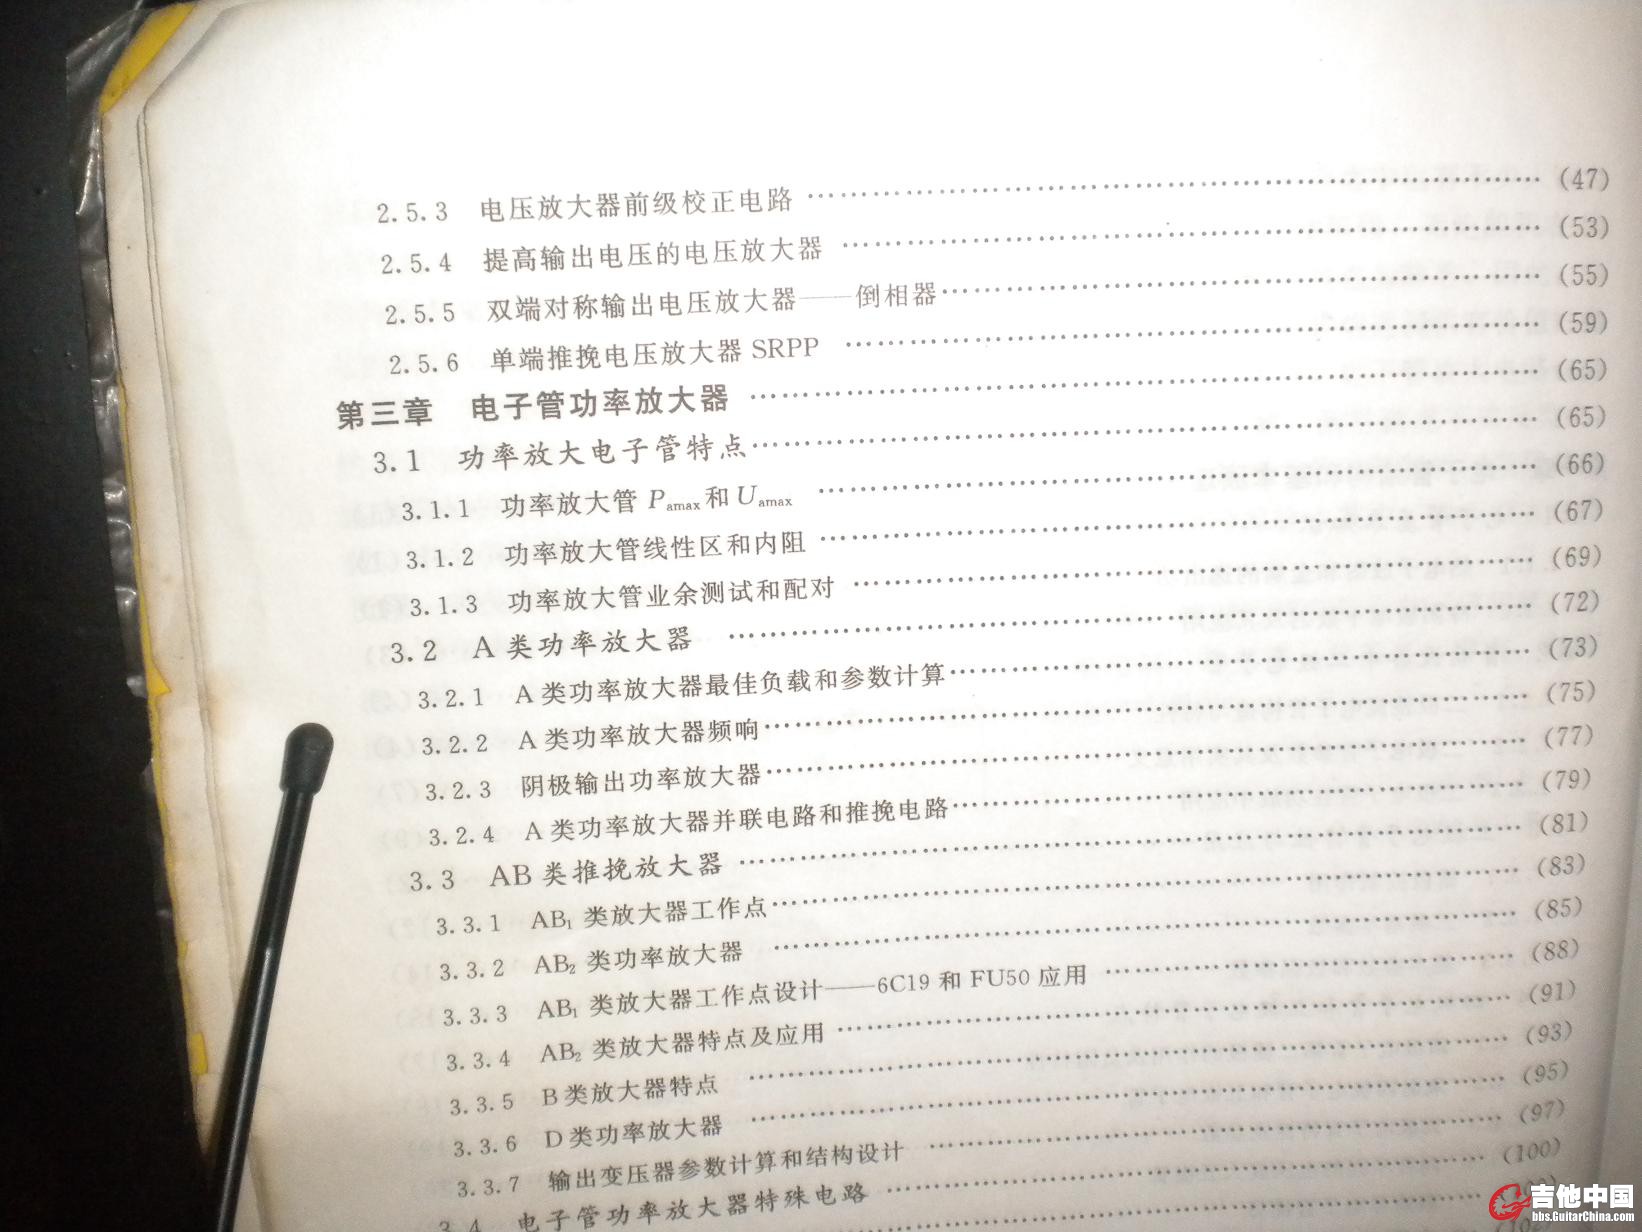 2.5.3 电压放大器前级校正电路 …………………… (47)
2.5.4 提高输出电压的电压放大器 …………………… (53)
2.5.5 双端对称输出电压放大器——倒相器…………………… (55)
2.5.6 单端推挽电压放大器 SRPP …………………… (59)
第三章 电子管功率放大器 …………………… (65)
3.1 功率放大电子管特点…………………… (65)
3.1.1 功率放大管 Pamax和Uamax …………………… (66)
3.1.2 功率放大管线性区和内阻 …………………… (67)
3.1.3 功率放大管业余测试和配对 …………………… (69)
3.2 A 类功率放大器 …………………… (72)
3.2.1 A 类功率放大器最佳负载和参数计算…………………… (73)
3.2.2 A 类功率放大器频响…………………… (75)
3.2.3 阴极输出功率放大器…………………… (77)
3.2.4 A 类功率放大器并联电路和推挽电路…………………… (79)
3.3 AB 类推挽放大器 …………………… (81)
3.3.1 AB₁ 类放大器工作点…………………… (83)
3.3.2 AB₂ 类功率放大器 …………………… (85)
3.3.3 AB₁ 类放大器工作点设计——6C19 和 FU50 应用 …………………… (88)
3.3.4 AB₂ 类放大器特点及应用 …………………… (91)
3.3.5 B 类放大器特点 …………………… (93)
3.3.6 D 类功率放大器 …………………… (95)
3.3.7 输出变压器参数计算和结构设计 …………………… (97)
3.4 电子管功率放大器特殊电路 …………………… (100)
吉他中国
bbs.GuitarChina.com